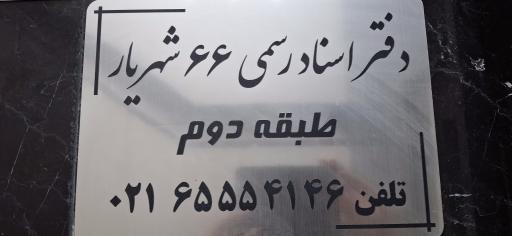 دفتر اسناد رسمی ۶۶ شهریار
طبقه دوم
تلفن ۶۵۵۵۴۱۴۶ ۰۲۱